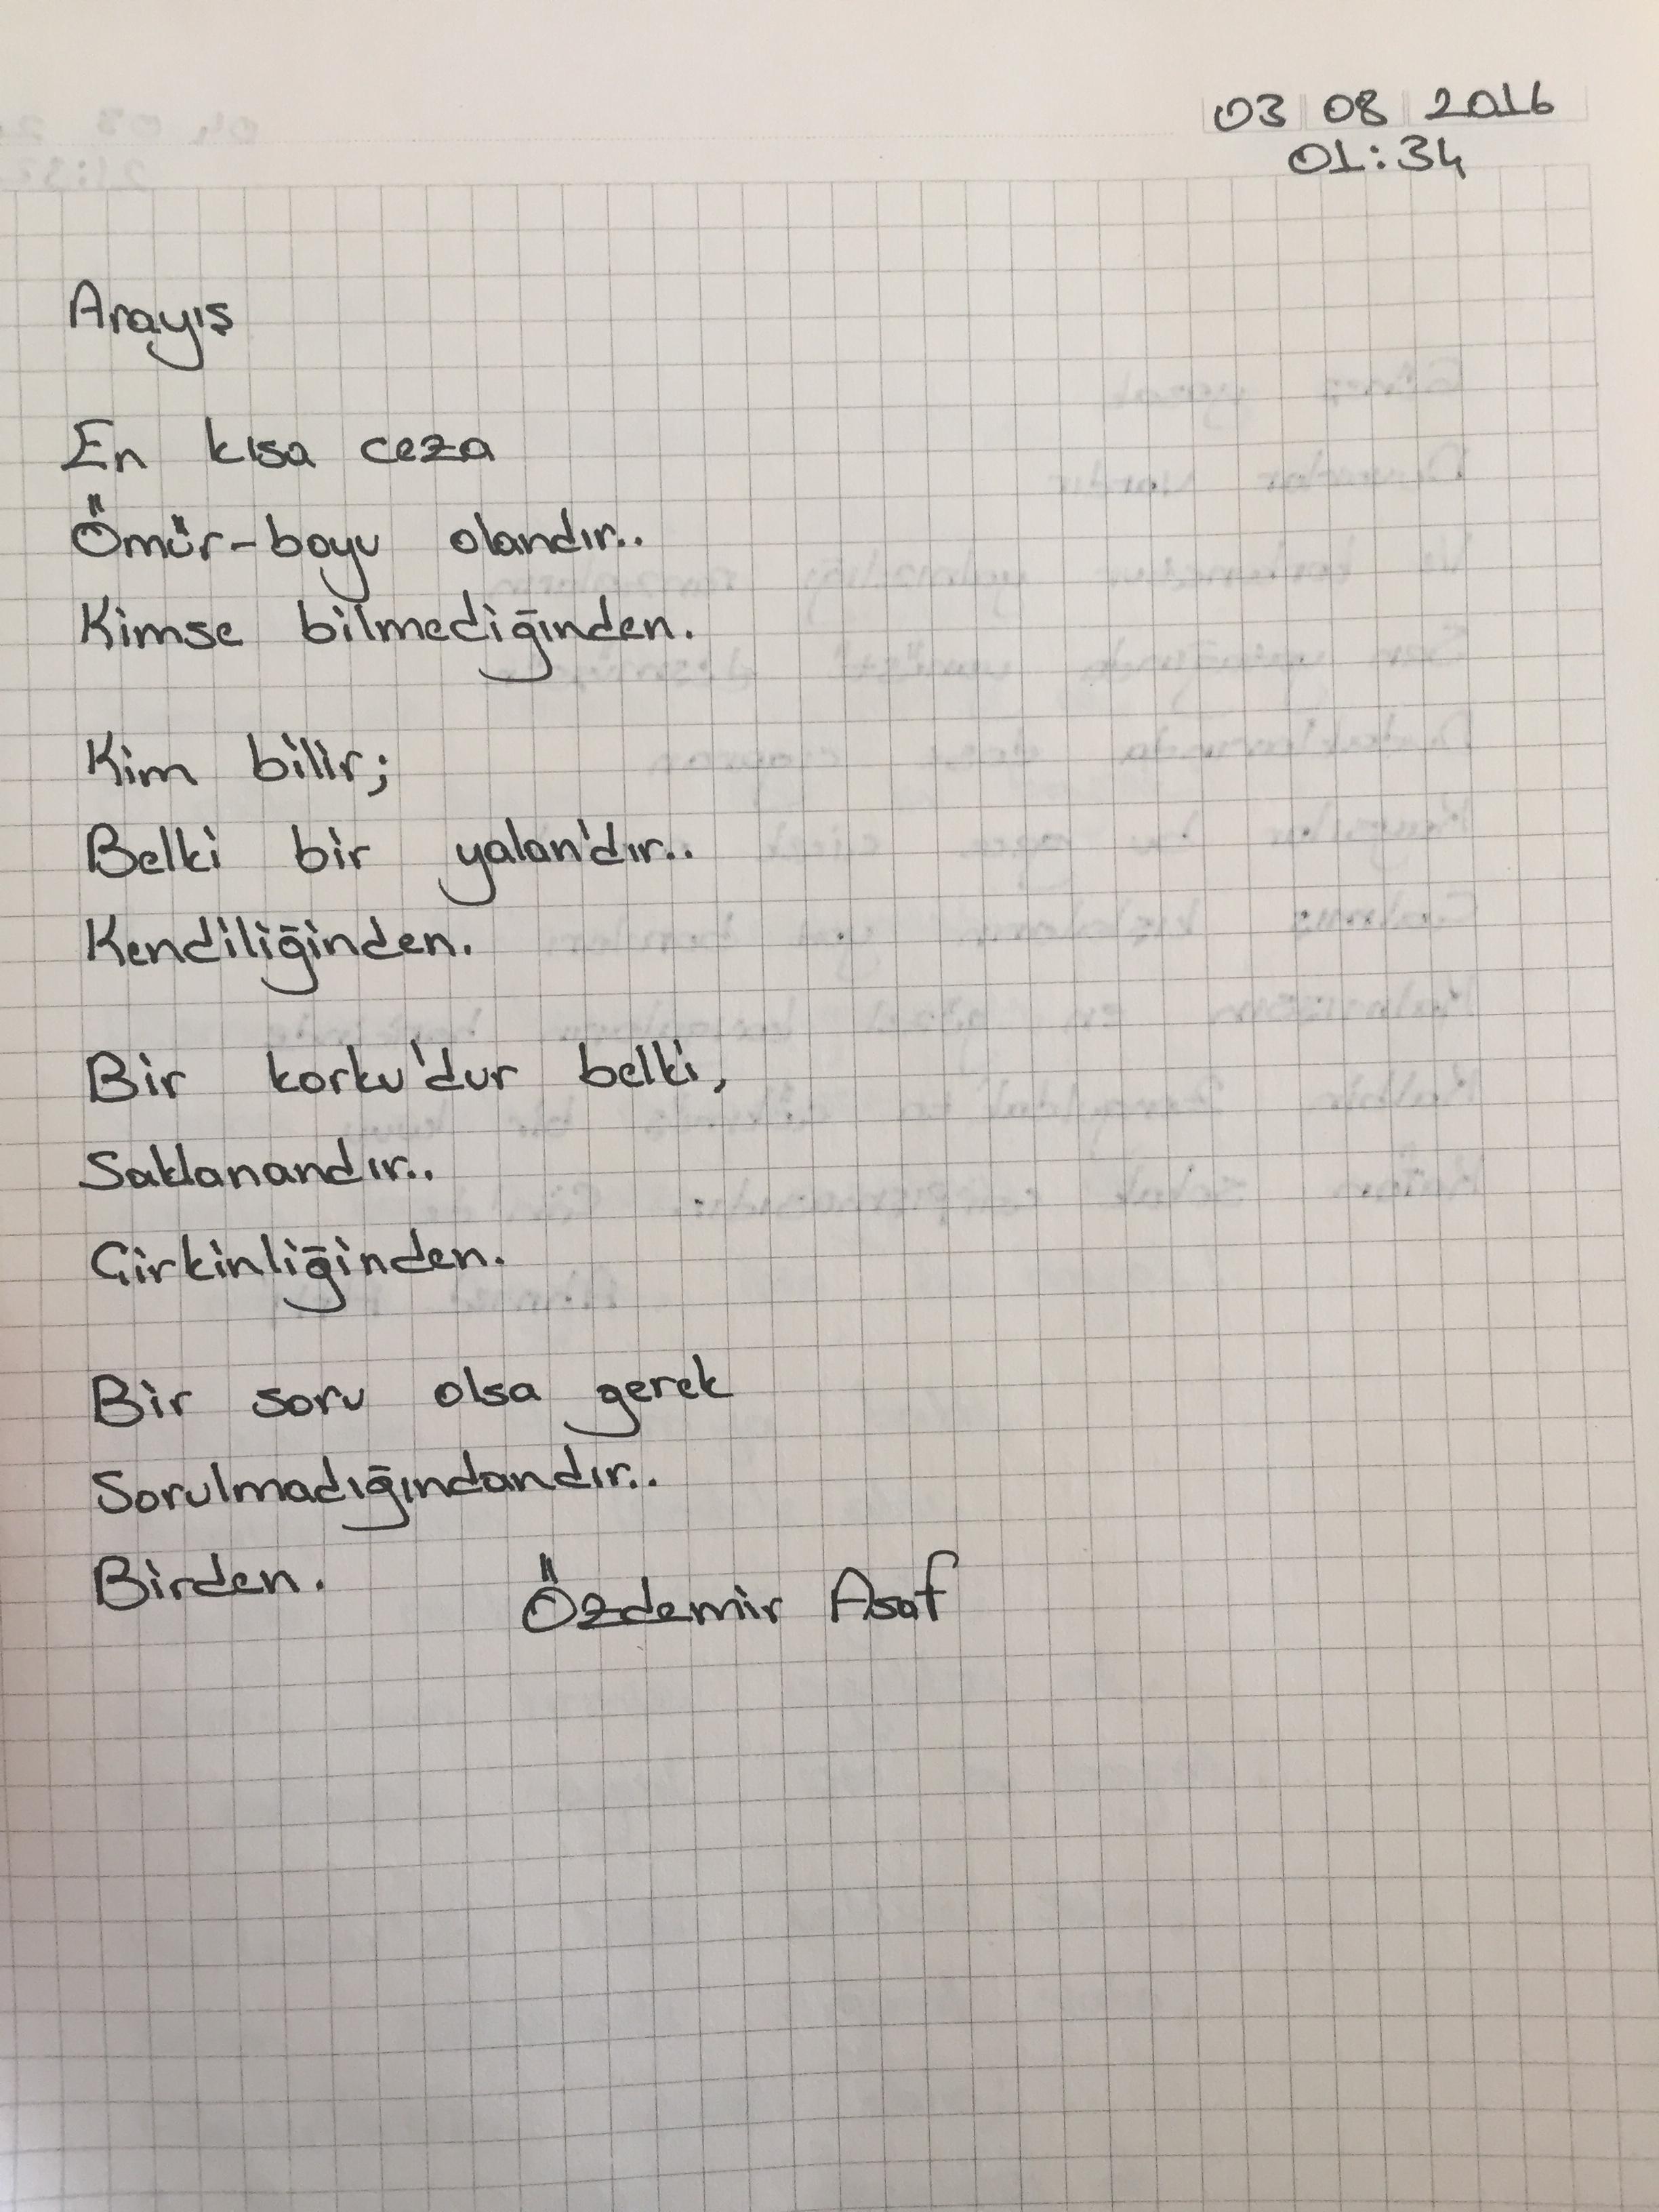 03 08 2016
01:34
Arayış
En kısa ceza
Ömür-boyu olandır..
Kimse bilmediğinden.
Kim bilir;
Belki bir yalan'dır..
Kendiliğinden.
Bir korku'dur belki,
Saklanandır..
Çirkinliğinden.
Bir soru olsa gerek
Sorulmadığındandır..
Birden.
Özdemir Asaf